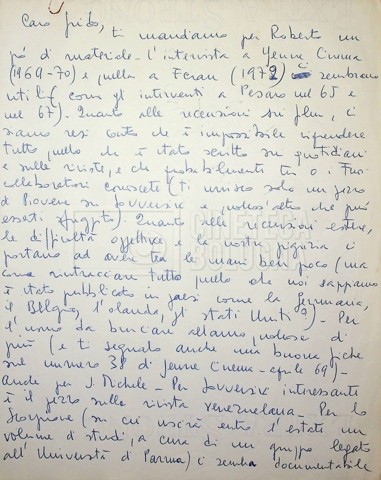 Caro Guido, ti mandiamo per Roberto un
pò di materiale - l'intervista a Jeune Cinéma
(1969-70) e quella a Ecran (1972) ci sembrano
utili come gli interventi a Pesaro nel 65 e
nel 67). Quanto alle recensioni sui films, ci
siamo resi conto che è impossibile riprendere
tutto quello che è stato scritto sui quotidiani
e sulle riviste, e che probabilmente tu o i tuoi
collaboratori conoscete (ti unisco solo un pezzo
di Piovene su Sovversivi e qualcos'altro che può
esserti sfuggito). Quanto alle recensioni estere,
le difficoltà oggettive e la nostra pigrizia ci
portano ad avere tra le mani ben poco (ma
come rintracciare tutto quello che noi sappiamo
è stato pubblicato in paesi come la Germania,
il Belgio, l'Olanda, gli Stati Uniti?) - Per
l'uomo da bruciare abbiamo qualcosa di
più (e ti segnalo anche una buona fiche
sul numero 38 di Jeune Cinéma - aprile 69) -
Anche per S. Michele - Per Sovversivi interessante
è il pezzo sulla rivista venezuelana - Per lo
Scorpione (su cui uscirà entro l'estate un
volume di studi, a cura di un gruppo legato
all'Università di Parma) ci sembra documentabile
CINETECA
BOLOGNA